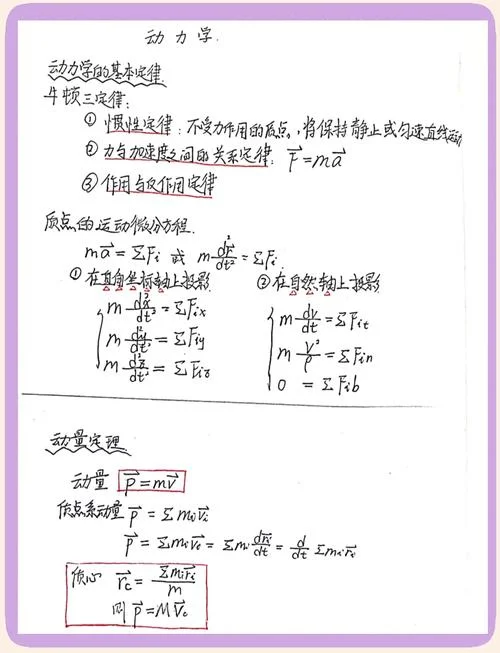 动力学.
动力学的基本定律
牛顿三定律:
① 惯性定律: 不受力作用的质点,将保持静止或匀速直线运动
② 力与加速度之间的关系定律: F⃗=ma⃗
③ 作用与反作用定律
质点的运动微分方程.
ma⃗=ΣFi 或 m d²r⃗/dt²=ΣFi
① 在直角坐标轴上投影
m d²x/dt²=ΣFix
m d²y/dt²=ΣFiy
m d²z/dt²=ΣFiz
② 在自然轴上投影
m dv/dt=ΣFit
m v²/ρ=ΣFin
0=ΣFib
动量定理
动量 p⃗=mv⃗
质点系动量 p⃗=Σmiv⃗i
p⃗=Σmiv⃗i=Σmi dr⃗i/dt=d/dt Σmir⃗i
质心 r⃗c=Σmir⃗i/m
则 p⃗=Mv⃗c